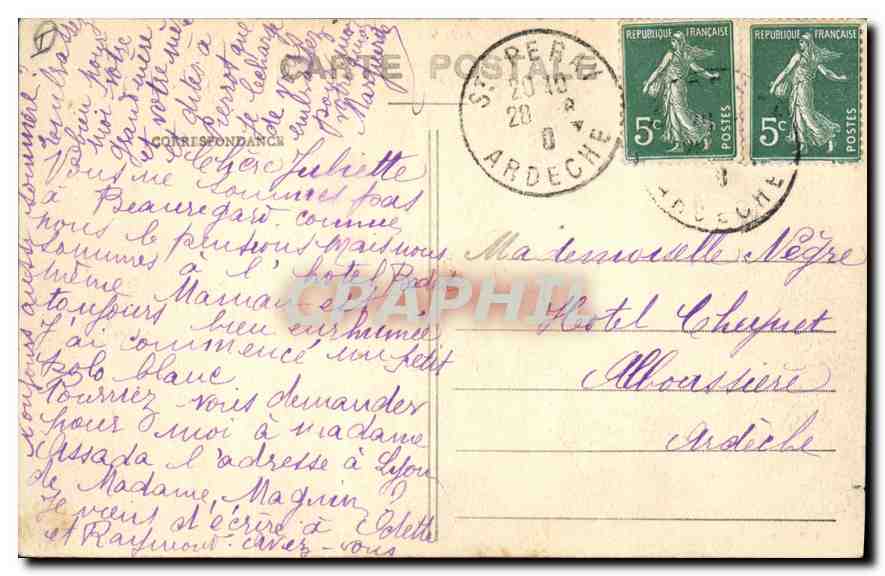 CARTE POSTALE
CORRESPONDANCE
Chère Juliette
Vous ne sommes pas
à Beauregard comme
nous le pensions mais nous
sommes à l'hotel
même Maman est
toujours bien enrhumée
J'ai commencé un petit
polo blanc
Pourriez vous demander
pour moi à madame
Cassada l'adresse à Lyon
de Madame Magnin?
Je viens d'écrire à Odette
et Raymont. avez-vous
toujours aussi sommeil?
Embrassez
bien pour
moi votre
grand mère
et votre mère
dites à
Pierrot que
je le charge
de vous
embrassez
pour moi
ST PERAY
20 10
28
ARDECHE
REPUBLIQUE FRANÇAISE
5c
REPUBLIQUE FRANÇAISE
5c
ARDECHE
Mademoiselle Nègre
Hotel Cheynet
Alboussière
Ardèche
CPAPHIL